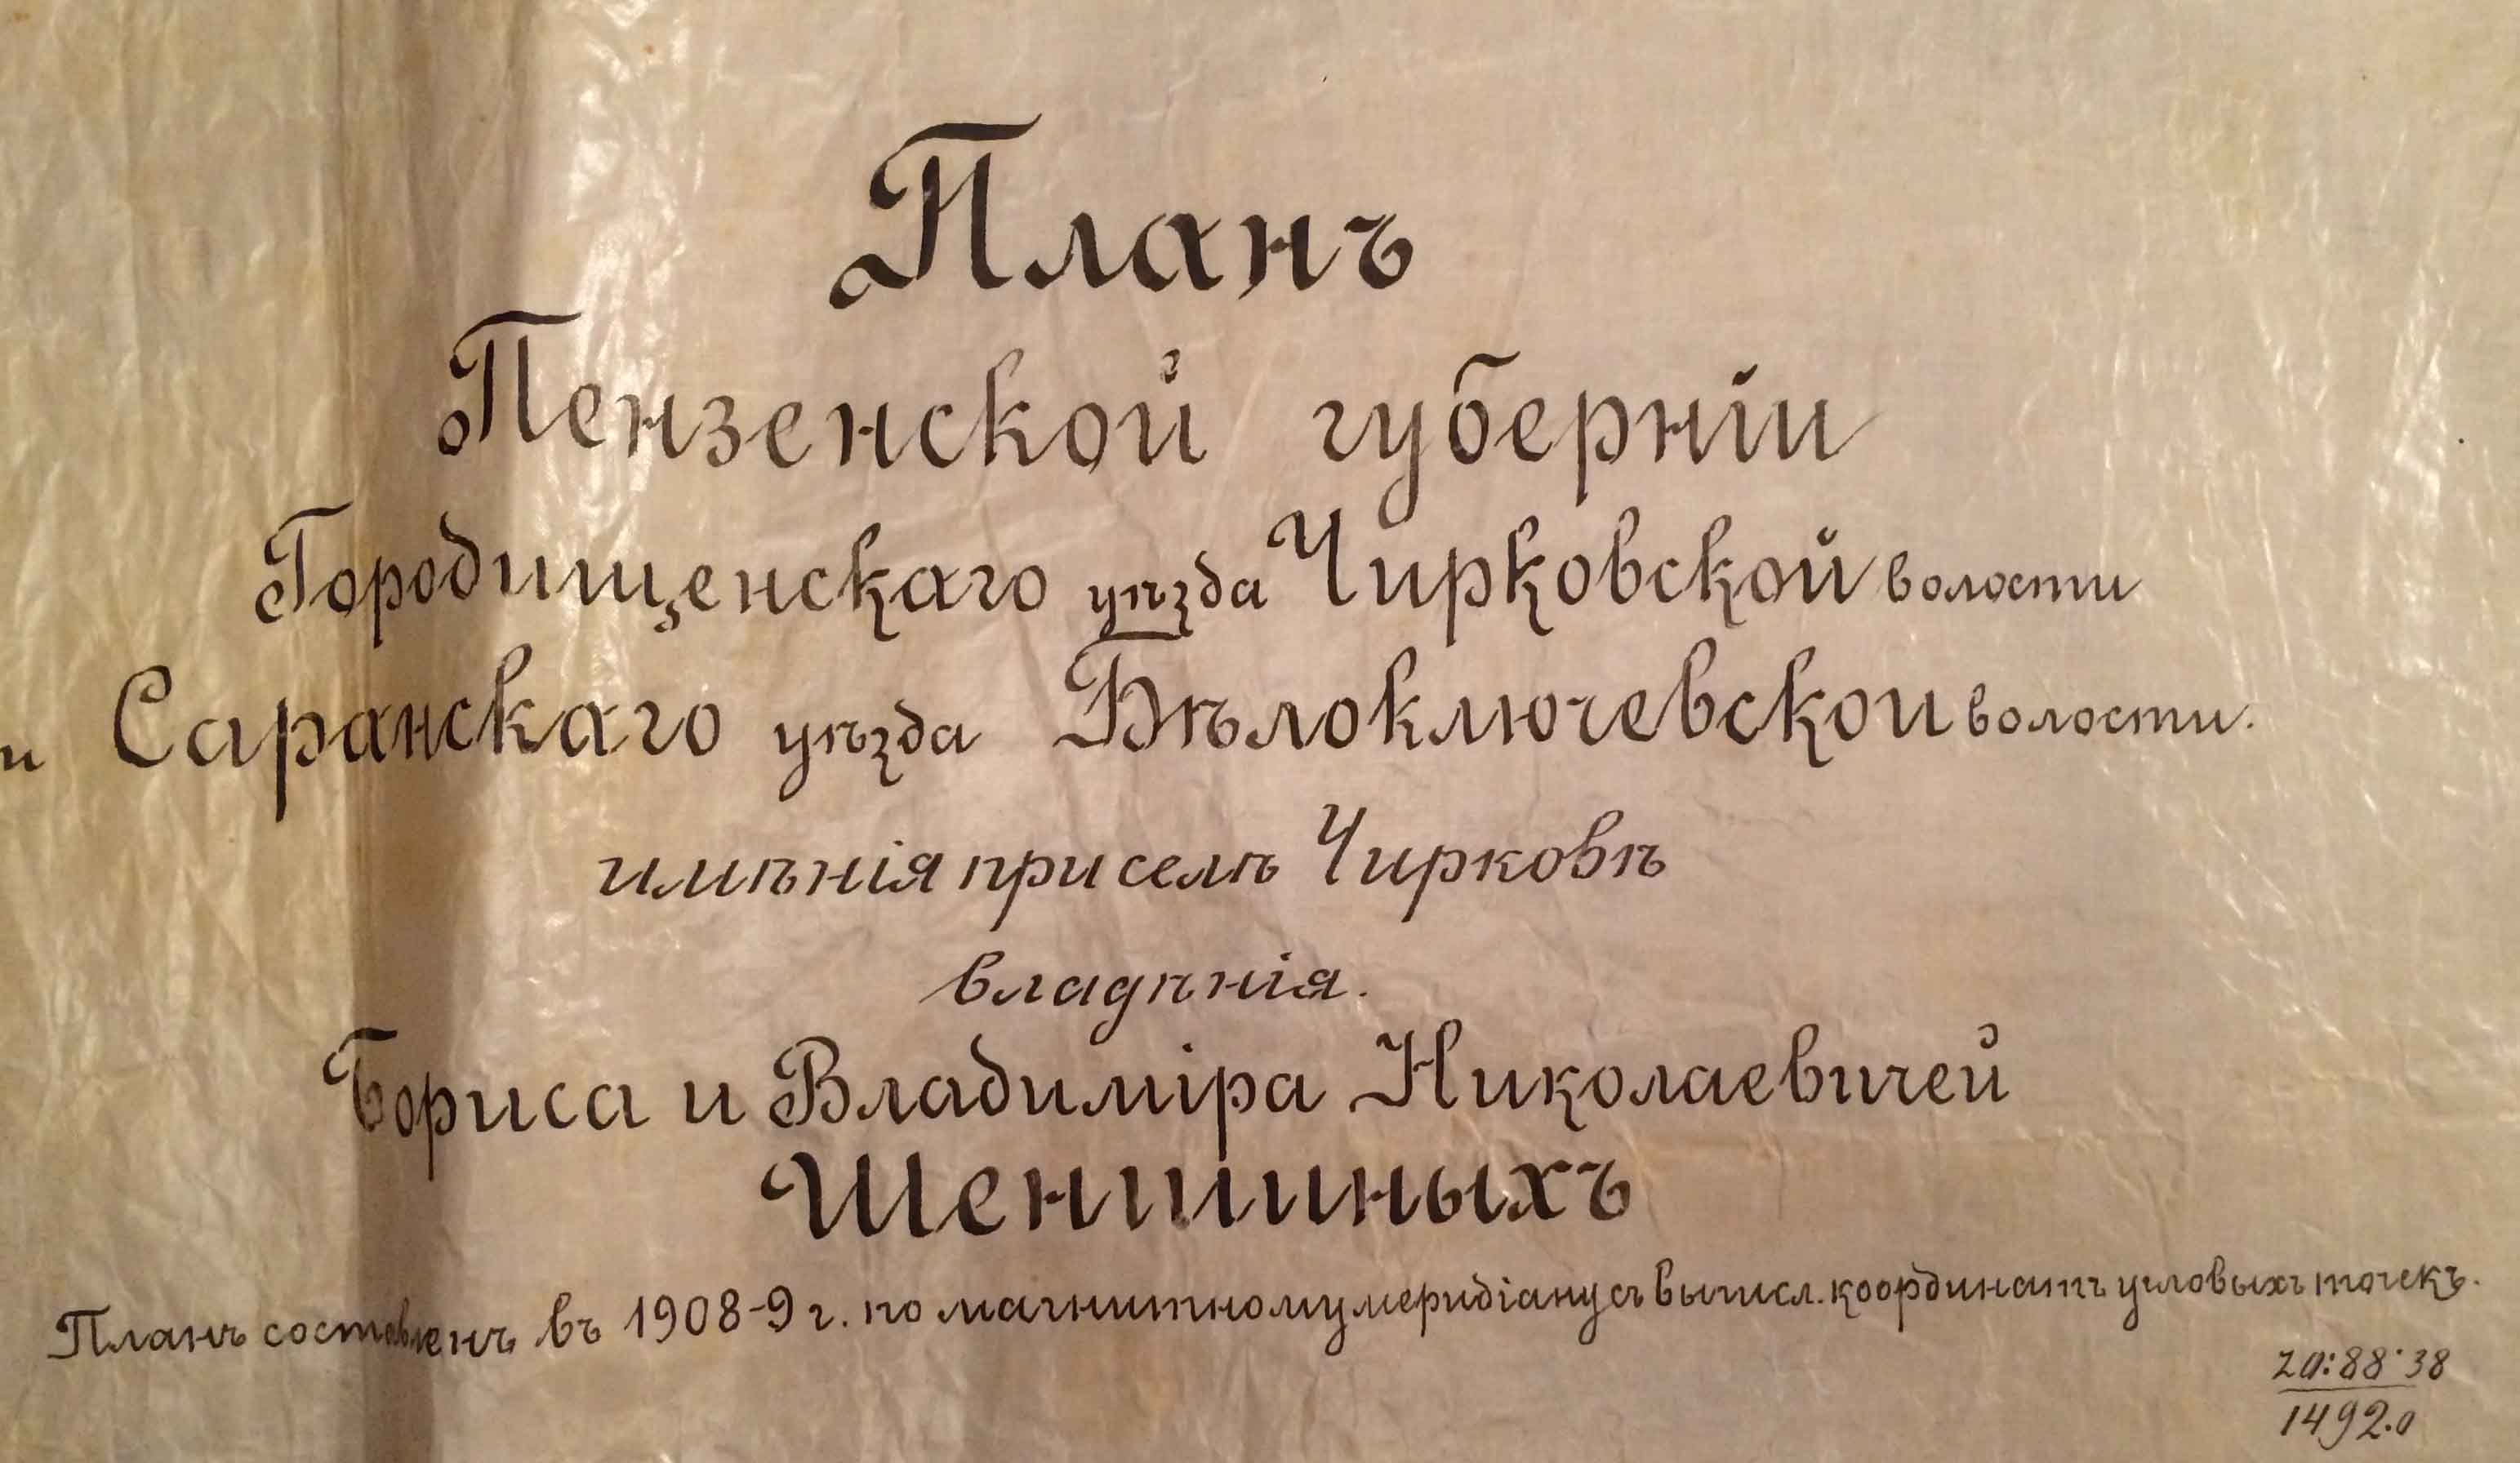 Планъ
Пензенской губерніи
Городищенскаго уѣзда Чирковской волости
и Саранскаго уѣзда Бѣлоключевской волости.
имѣнія при селѣ Чирковѣ
владѣнія.
Бориса и Владиміра Николаевичей
Шеншиныхъ
Планъ составленъ въ 1908-9 г. по магнитному меридіану съ вычисл. координатъ угловыхъ точекъ.
20:88·38
1492.0